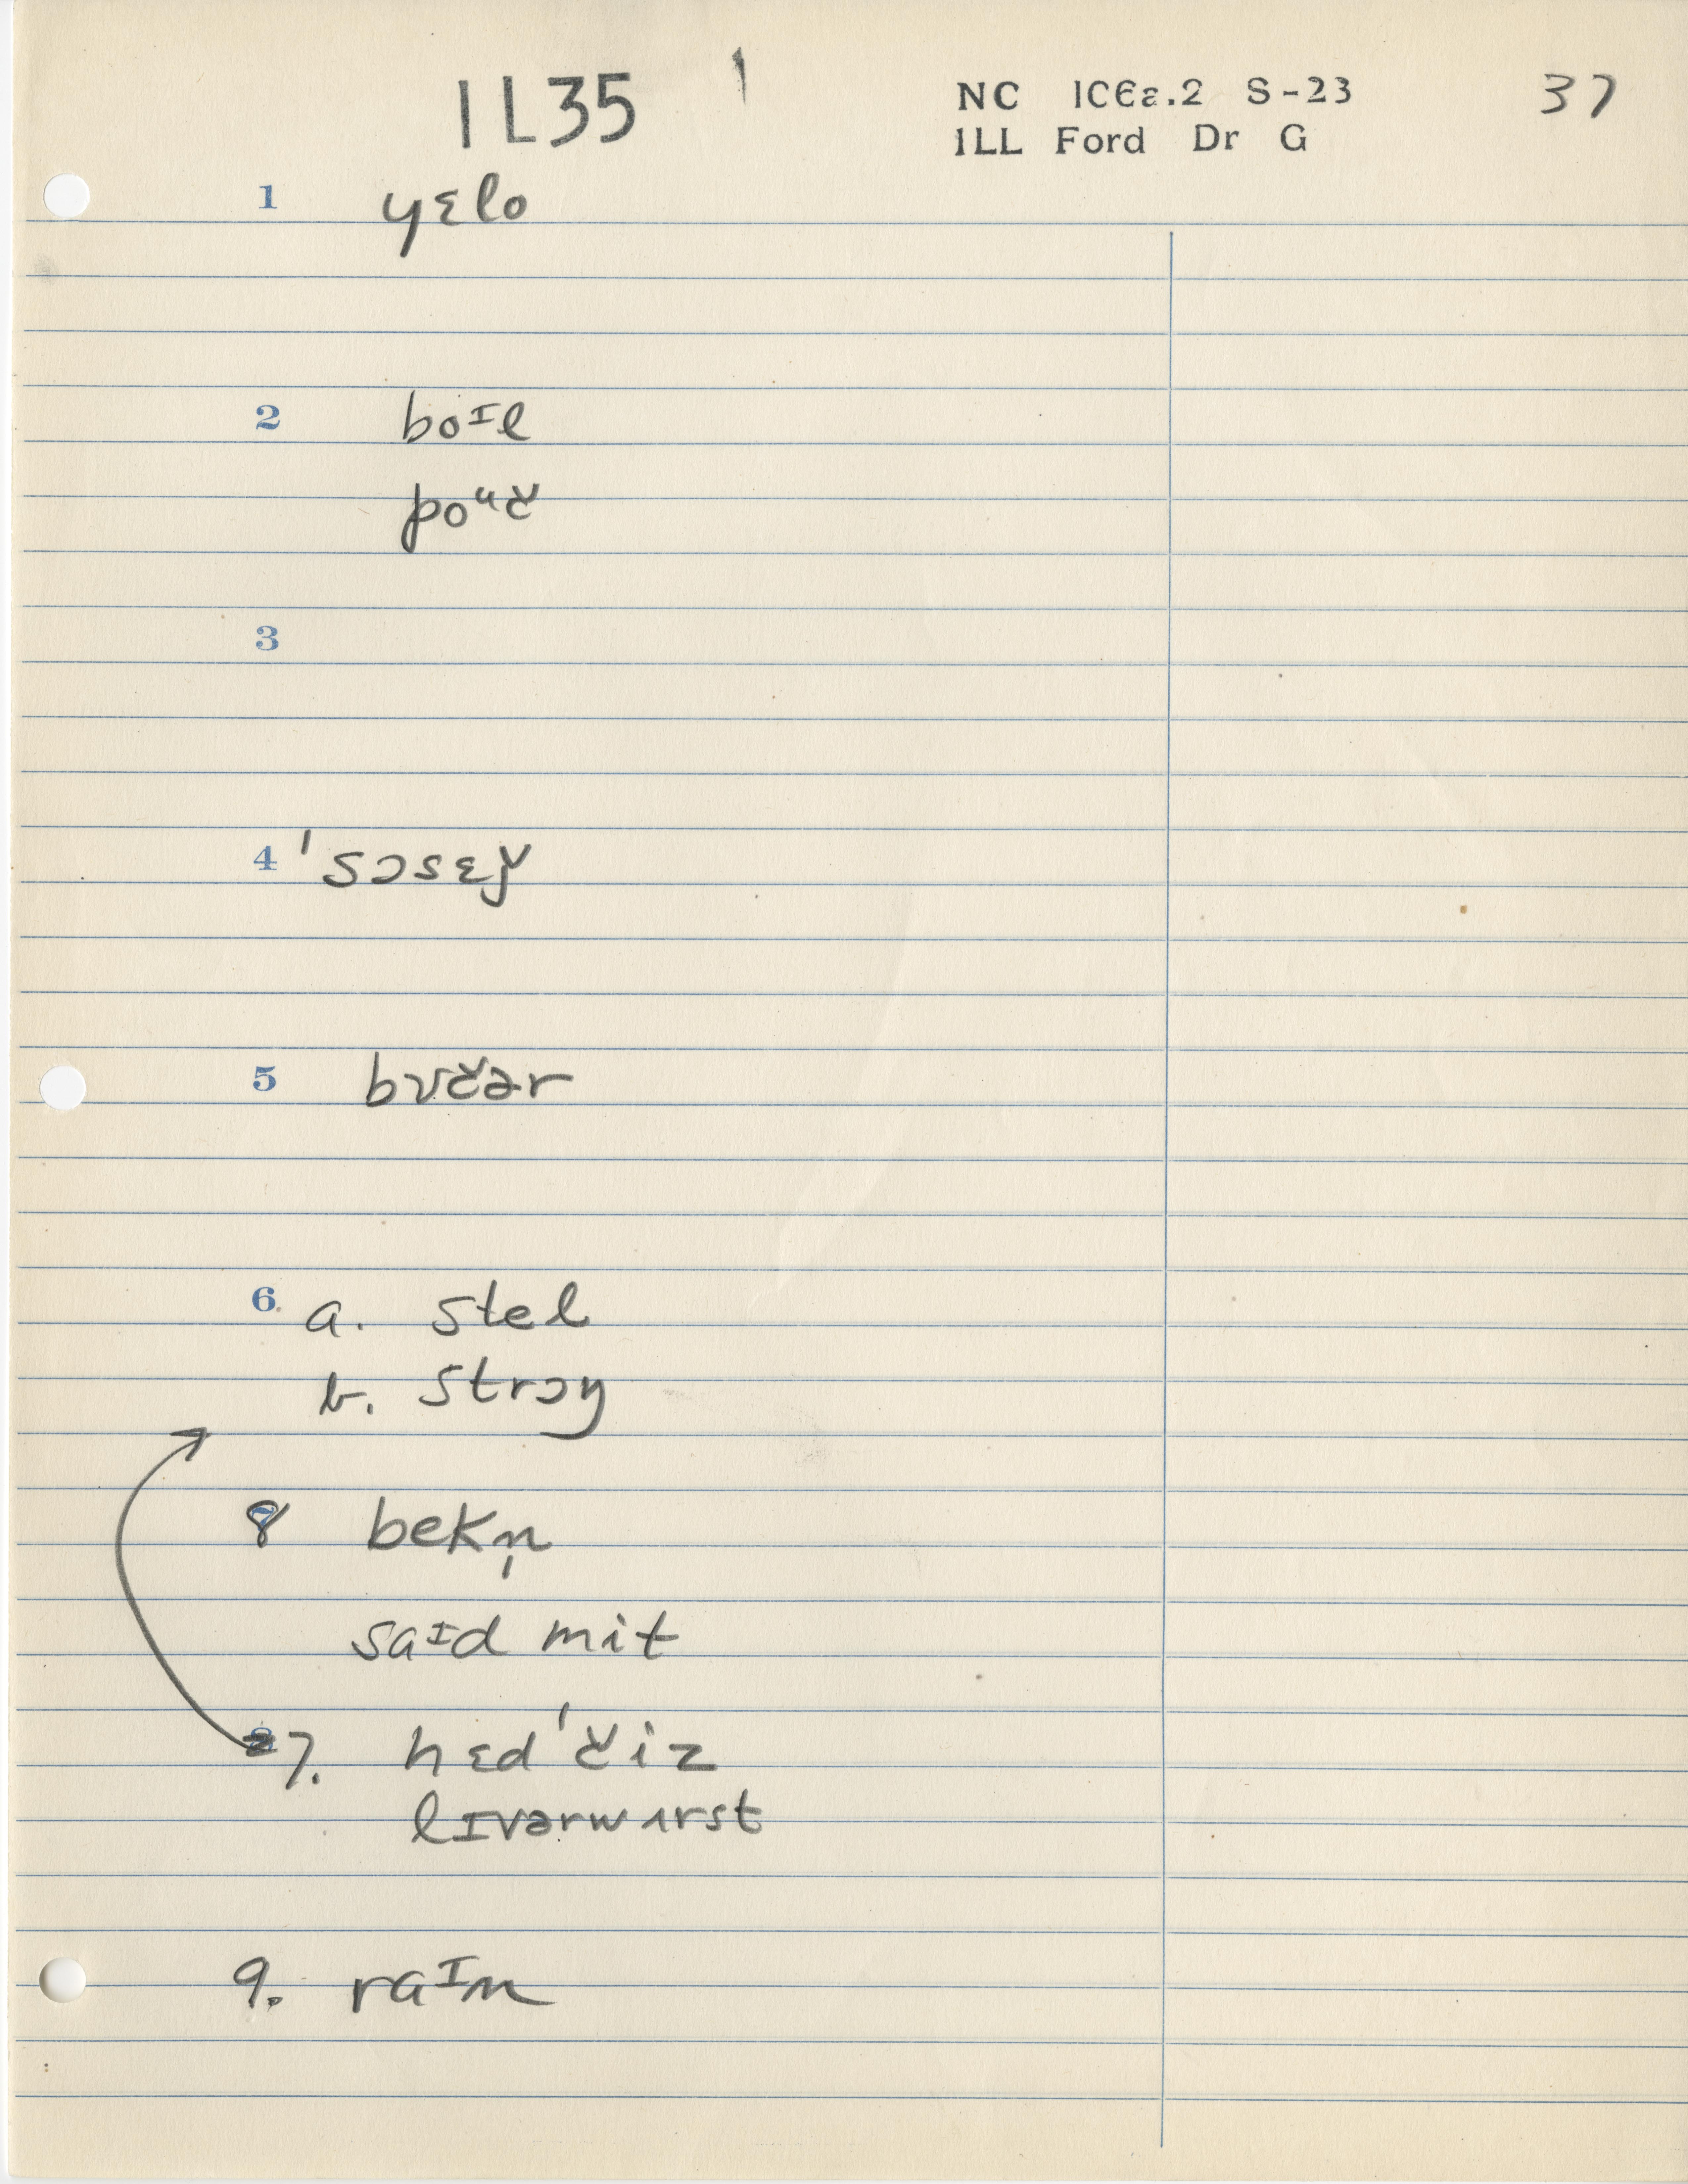 1L35
NC 1C6a.2 S-23
37
1LL Ford Dr G
1 yɛlo
2 boɪl
poᵘč
3
4 'sɔsɛǰ
5 bʊčər
6. a. stel
b. strɔŋ
8 bekn̩
saɪd mit
7. hɛd'čiz
lɪvərwɜrst
9. raɪn